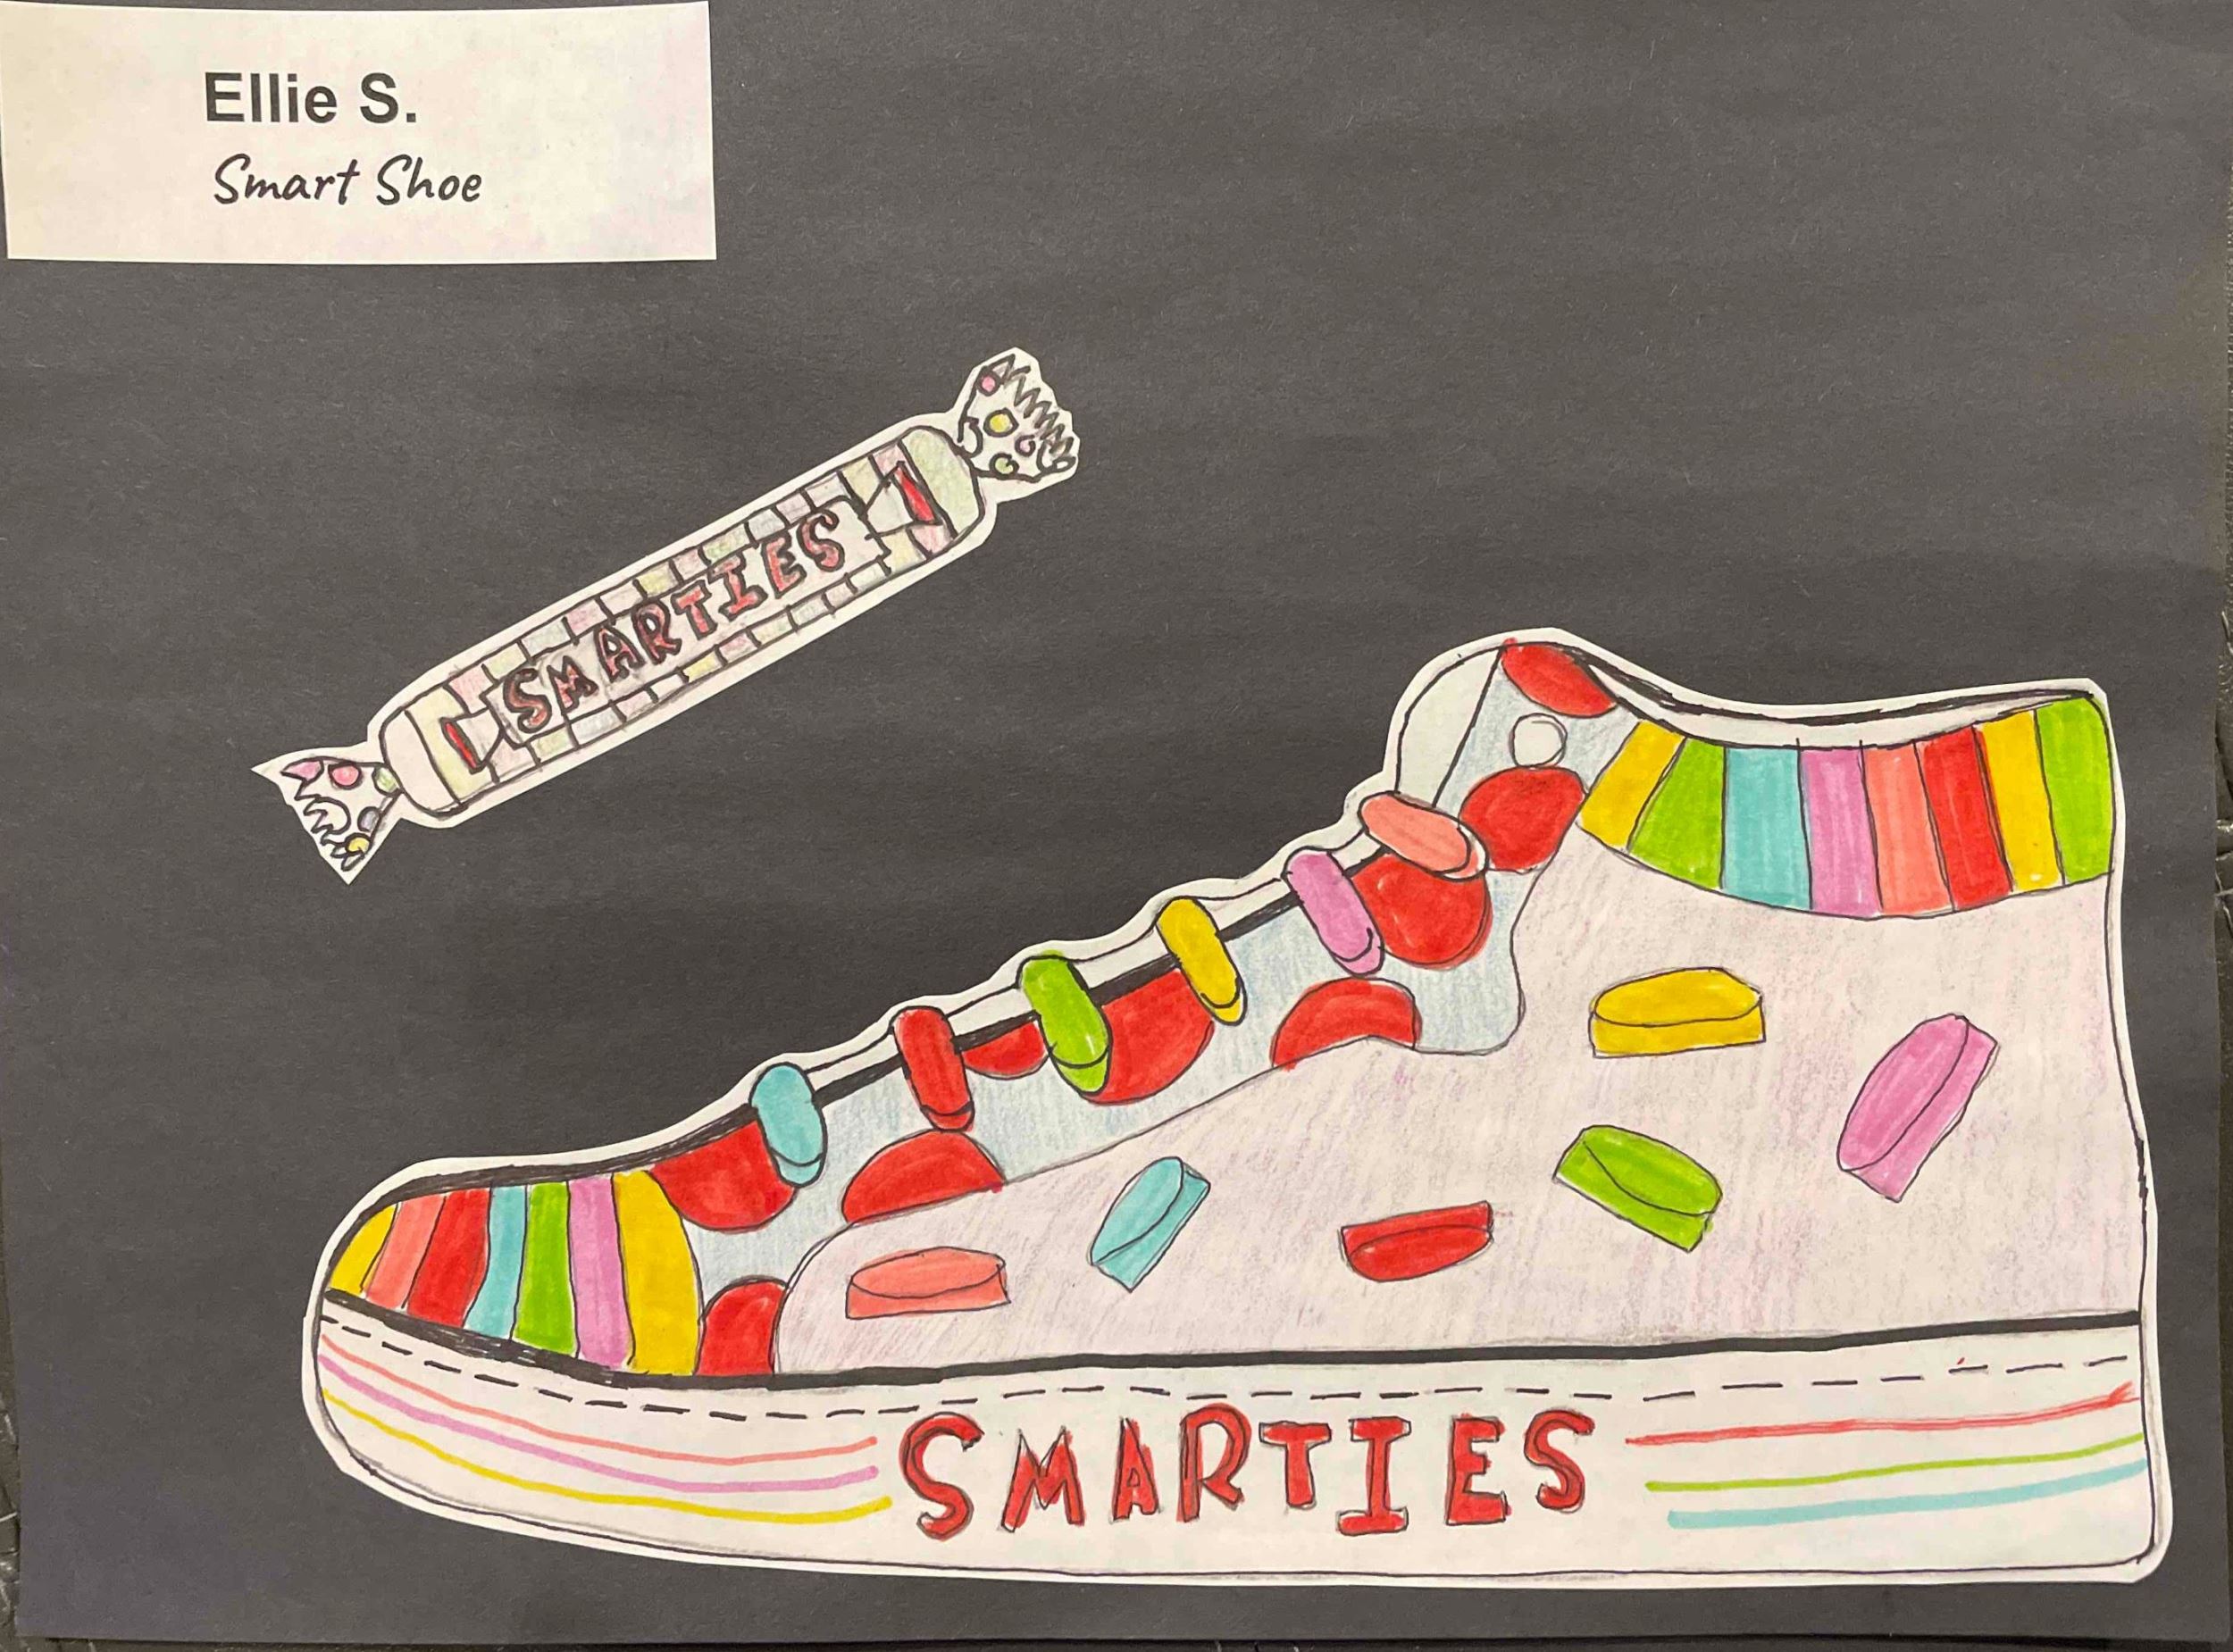 Ellie S.
Smart Shoe
SMARTIES
SMARTIES